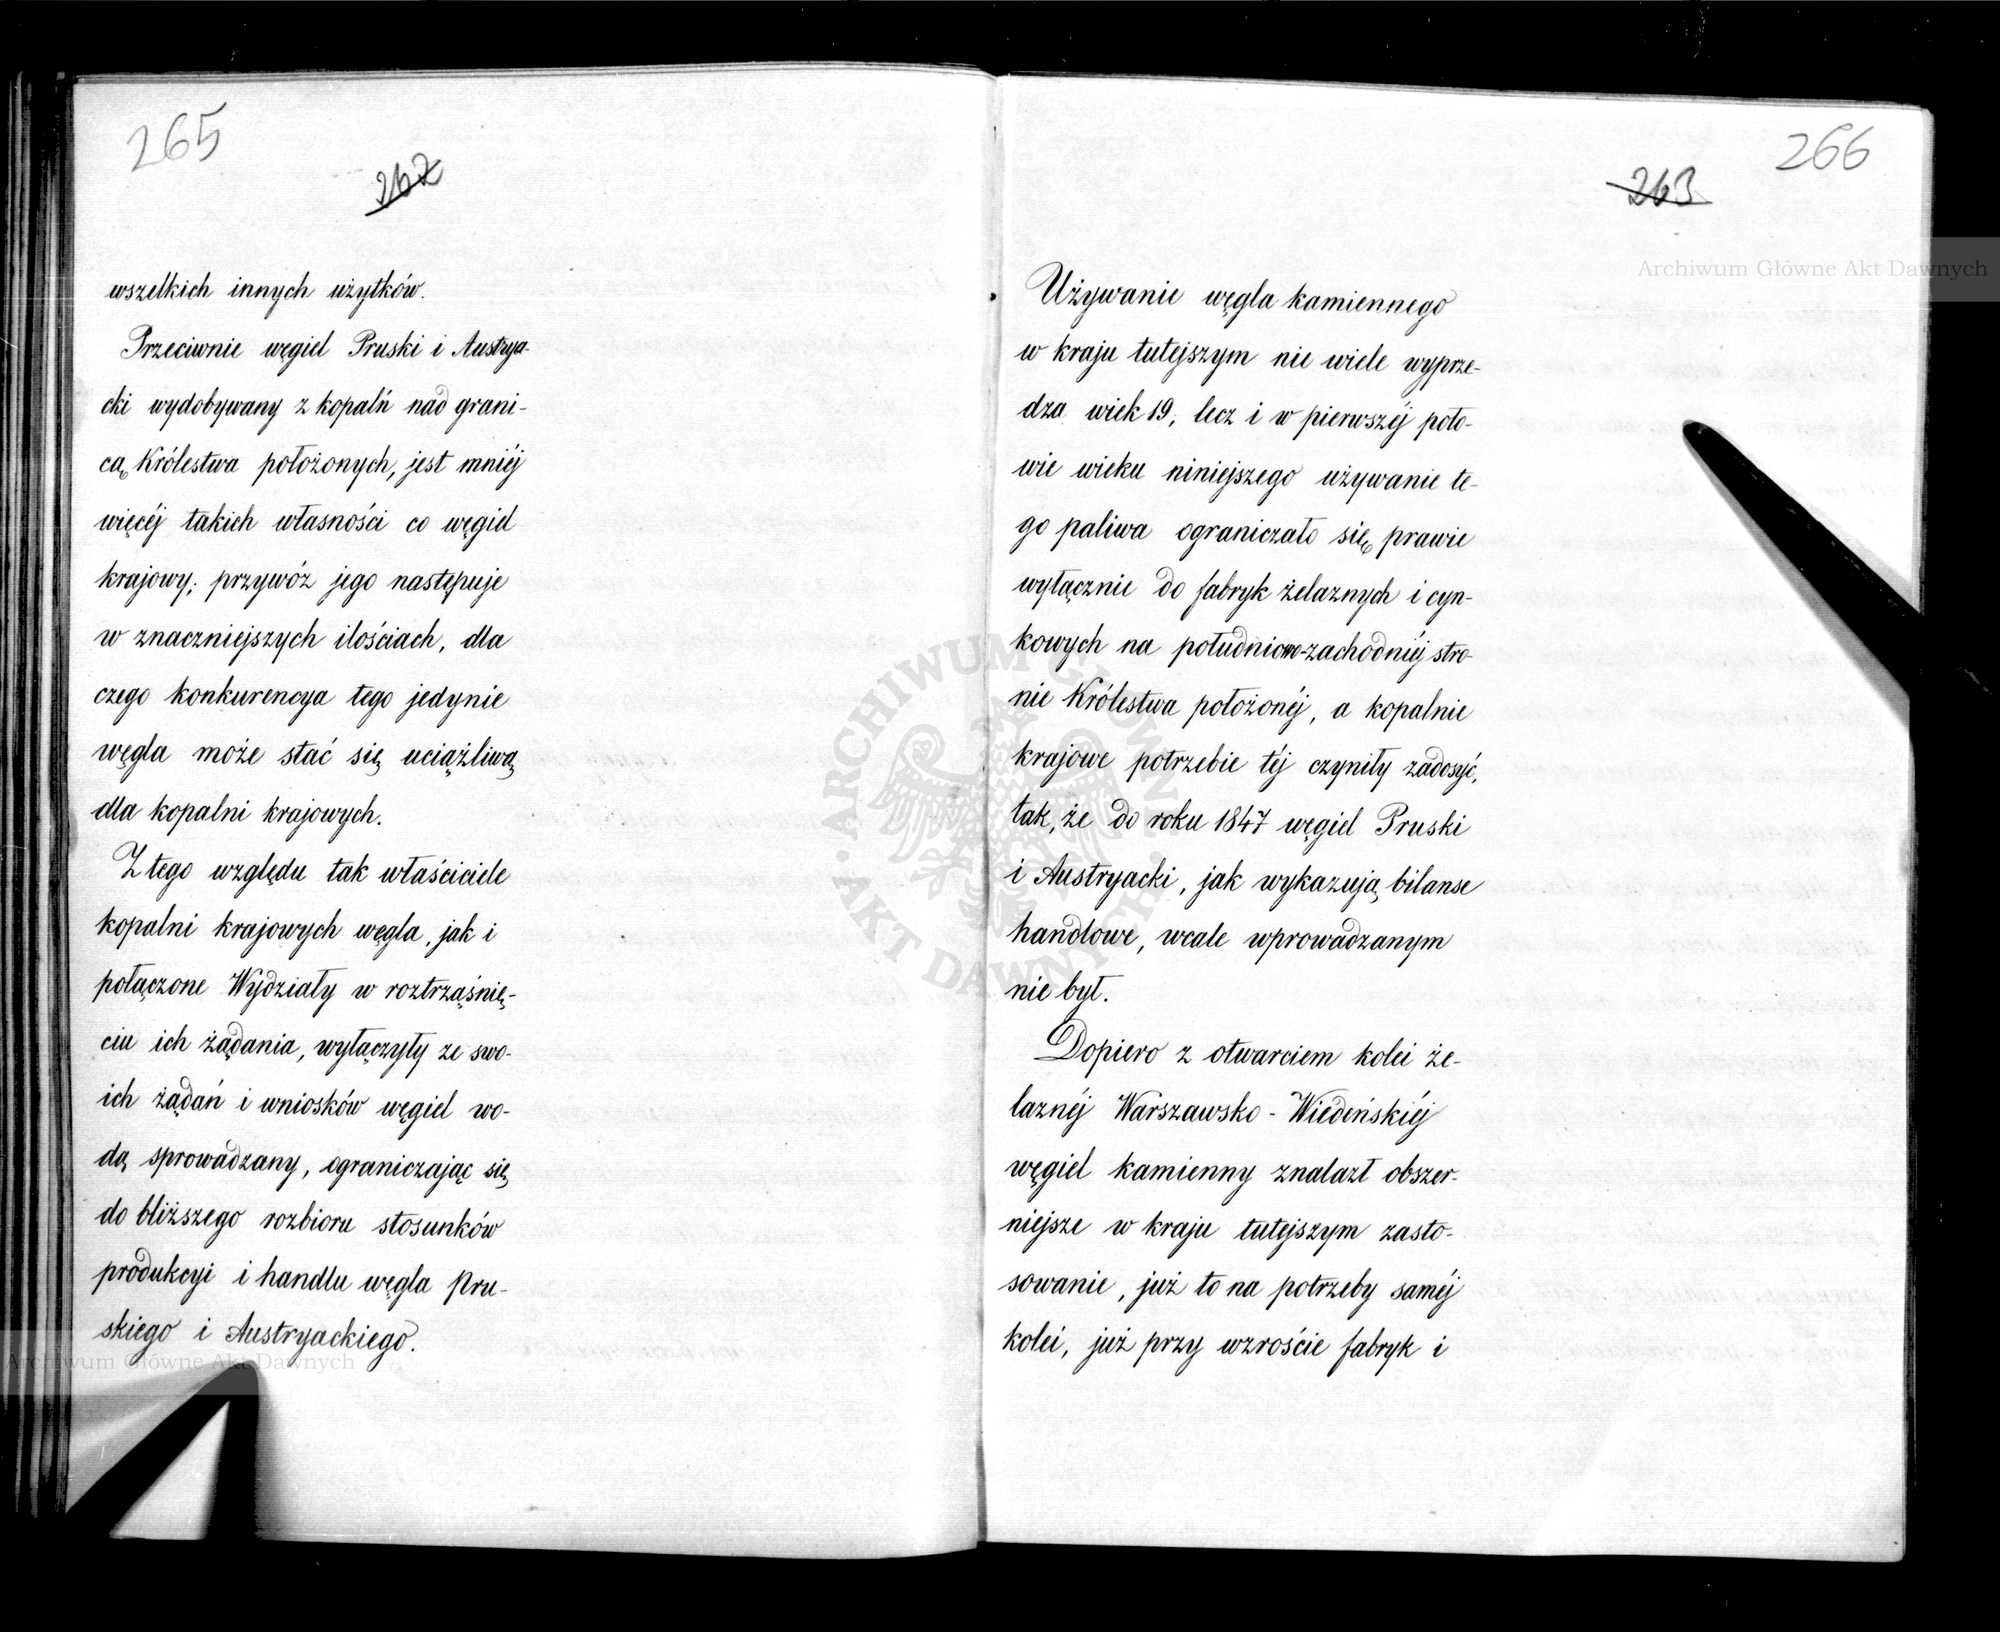 265
262
wszelkich innych użytków.
Przeciwnie węgiel Pruski i Austrya-
cki wydobywany z kopalń nad grani-
cą Królestwa położonych, jest mniéj
więcéj takich własności co węgiel
krajowy; przywóz jego następuje
w znaczniejszych ilościach, dla
czego konkurencya tego jedynie
węgla może stać się uciążliwą
dla kopalni krajowych.
Z tego względu tak właściciele
kopalni krajowych węgla, jak i
połączone Wydziały w roztrząśnię-
ciu ich żądania, wyłączyły ze swo-
ich żądań i wniosków węgiel wo-
dą sprowadzany, ograniczając się
do bliższego rozbioru stosunków
produkcyi i handlu węgla Pru-
skiego i Austryackiego.
Archiwum Główne Akt Dawnych
266
263
Archiwum Główne Akt Dawnych
Używanie węgla kamiennego
w kraju tutejszym nie wiele wyprze-
dza wiek 19, lecz i w pierwszéj poło-
wie wieku niniejszego używanie te-
go paliwa ograniczało się prawie
wyłącznie do fabryk żelaznych i cyn-
kowych na południowo-zachodniéj stro-
nie Królestwa położonéj, a kopalnie
krajowe potrzebie téj czyniły zadosyć,
tak, że do roku 1847 węgiel Pruski
i Austryacki, jak wykazują bilanse
handlowe, wcale wprowadzanym
nie był.
Dopiero z otwarciem kolei że-
laznéj Warszawsko-Wiedeńskiéj
węgiel kamienny znalazł obszer-
niejsze w kraju tutejszym zasto-
sowanie, już to na potrzeby saméj
kolei, już przy wzroście fabryk i
ARCHIWUM GŁÓWNE · AKT DAWNYCH ·